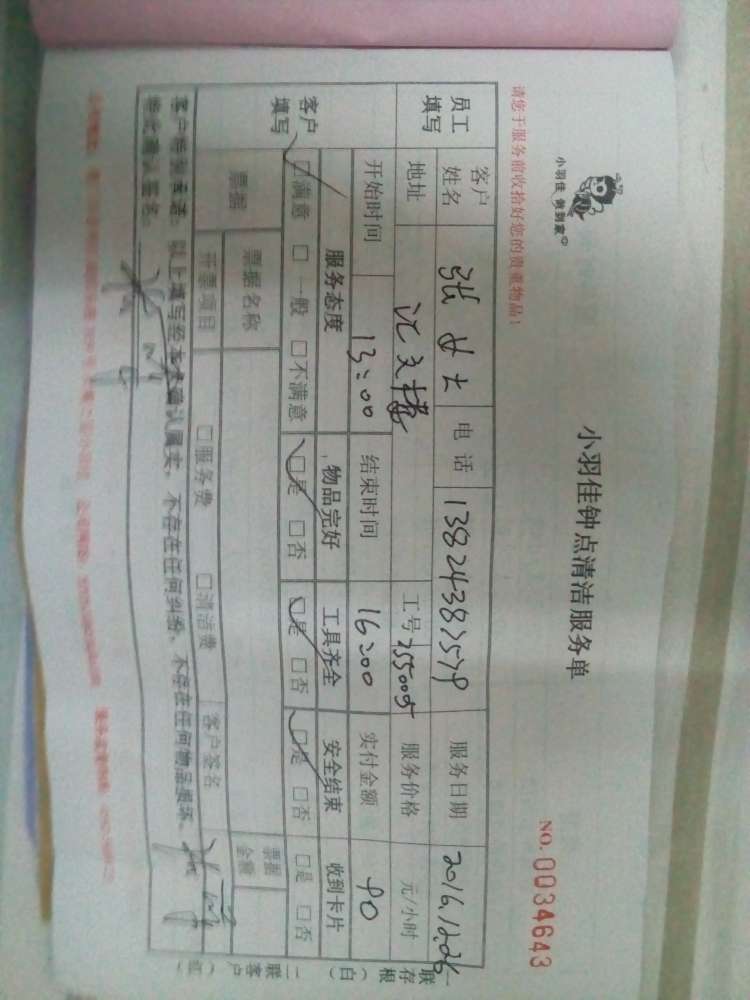 小羽佳 做到家
小羽佳钟点清洁服务单
NO. 0034643
请您于服务前收拾好您的贵重物品！
员工填写 客户姓名 张女士 电话 服务日期 2016.12.26
地址 汇文楼 工号 255005 服务价格 元/小时
开始时间 13:00 结束时间 16:00 实付金额 90
客户填写 服务态度 物品完好 工具齐全 安全结束 收到卡片
☑满意 □一般 □不满意 ☑是 □否 ☑是 □否 ☑是 □否 □是 □否
票据 票据名称 票据金额
开票项目 □服务费 □清洁费 客户签名
以上填写经本人确认属实，不存在任何纠纷，不存在任何物品损坏，
特此确认签名：
一联存根（白） 二联客户（红）